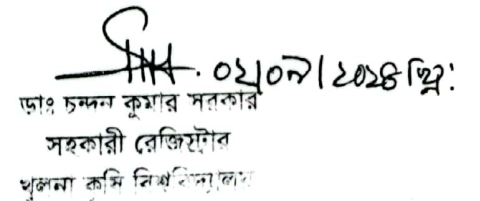 ০২/০৭/২০২৪ খ্রি:
ডাঃ চন্দন কুমার সরকার
সহকারী রেজিস্ট্রার
খুলনা কৃষি বিশ্ববিদ্যালয়